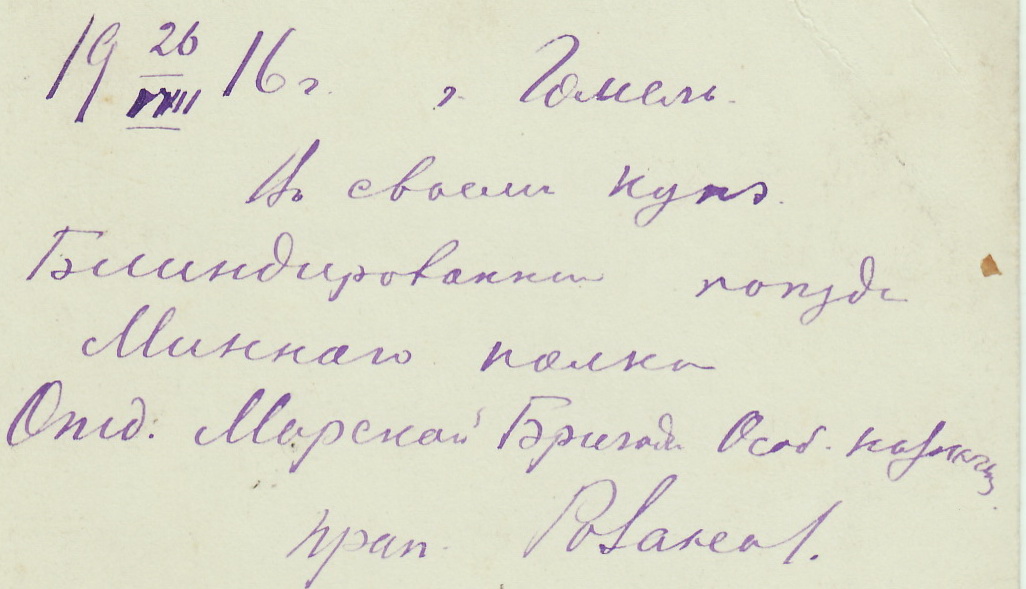 19 26/VIII 16 г. г. Гомель.
Въ своем купэ.
Блиндированный поезд
Миннаго полка
Отд. Морской Бригады Особ. назначения
прап.